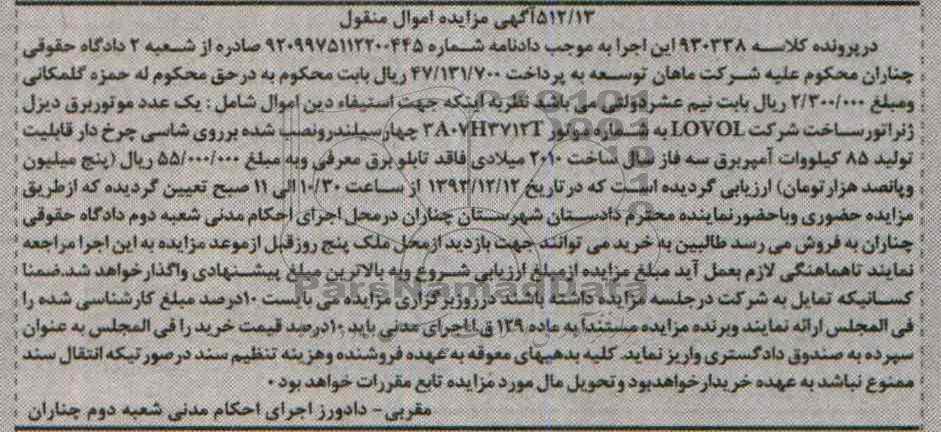 ۵۱۲/۱۳آگهی مزایده اموال منقول
درپرونده کلاسه ۹۳۰۳۳۸ این اجرا به موجب دادنامه شماره ۹۲۰۹۹۷۵۱۱۲۲۰۰۴۴۵ صادره از شعبه ۲ دادگاه حقوقی
چناران محکوم علیه شرکت ماهان توسعه به پرداخت ۴۷/۱۳۱/۷۰۰ ریال بابت محکوم به درحق محکوم له حمزه گلمکانی
ومبلغ ۲/۳۰۰/۰۰۰ ریال بابت نیم عشردولتی می باشد نظربه اینکه جهت استیفاء دین اموال شامل : یک عدد موتوربرق دیزل
ژنراتورساخت شرکت LOVOL به شماره موتور ۳A۰۷H۳۷۱۲T چهارسیلندرونصب شده برروی شاسی چرخ دار قابلیت
تولید ۸۵ کیلووات آمپربرق سه فاز سال ساخت ۲۰۱۰ میلادی فاقد تابلوبرق معرفی وبه مبلغ ۵۵/۰۰۰/۰۰۰ ریال (پنج میلیون
وپانصد هزارتومان) ارزیابی گردیده است که درتاریخ ۱۳۹۳/۱۲/۱۲ از ساعت ۱۰/۳۰ الی ۱۱ صبح تعیین گردیده که ازطریق
مزایده حضوری وباحضورنماینده محترم دادستان شهرستان چناران درمحل اجرای احکام مدنی شعبه دوم دادگاه حقوقی
چناران به فروش می رسد طالبین به خرید می توانند جهت بازدید ازمحل ملک پنج روزقبل ازموعد مزایده به این اجرا مراجعه
نمایند تاهماهنگی لازم بعمل آید مبلغ مزایده ازمبلغ ارزیابی شروع وبه بالاترین مبلغ پیشنهادی واگذارخواهد شد.ضمنا
کسانیکه تمایل به شرکت درجلسه مزایده داشته باشند درروزبرگزاری مزایده می بایست ۱۰درصد مبلغ کارشناسی شده را
فی المجلس ارائه نمایند وبرنده مزایده مستندا به ماده ۱۲۹ ق.ا.اجرای مدنی باید ۱۰درصد قیمت خرید را فی المجلس به عنوان
سپرده به صندوق دادگستری واریز نماید. کلیه بدهیهای معوقه به عهده فروشنده وهزینه تنظیم سند درصورتیکه انتقال سند
ممنوع نباشد به عهده خریدارخواهدبود وتحویل مال مورد مزایده تابع مقررات خواهد بود ۰
مقربی- دادورز اجرای احکام مدنی شعبه دوم چناران
ParsNamadData